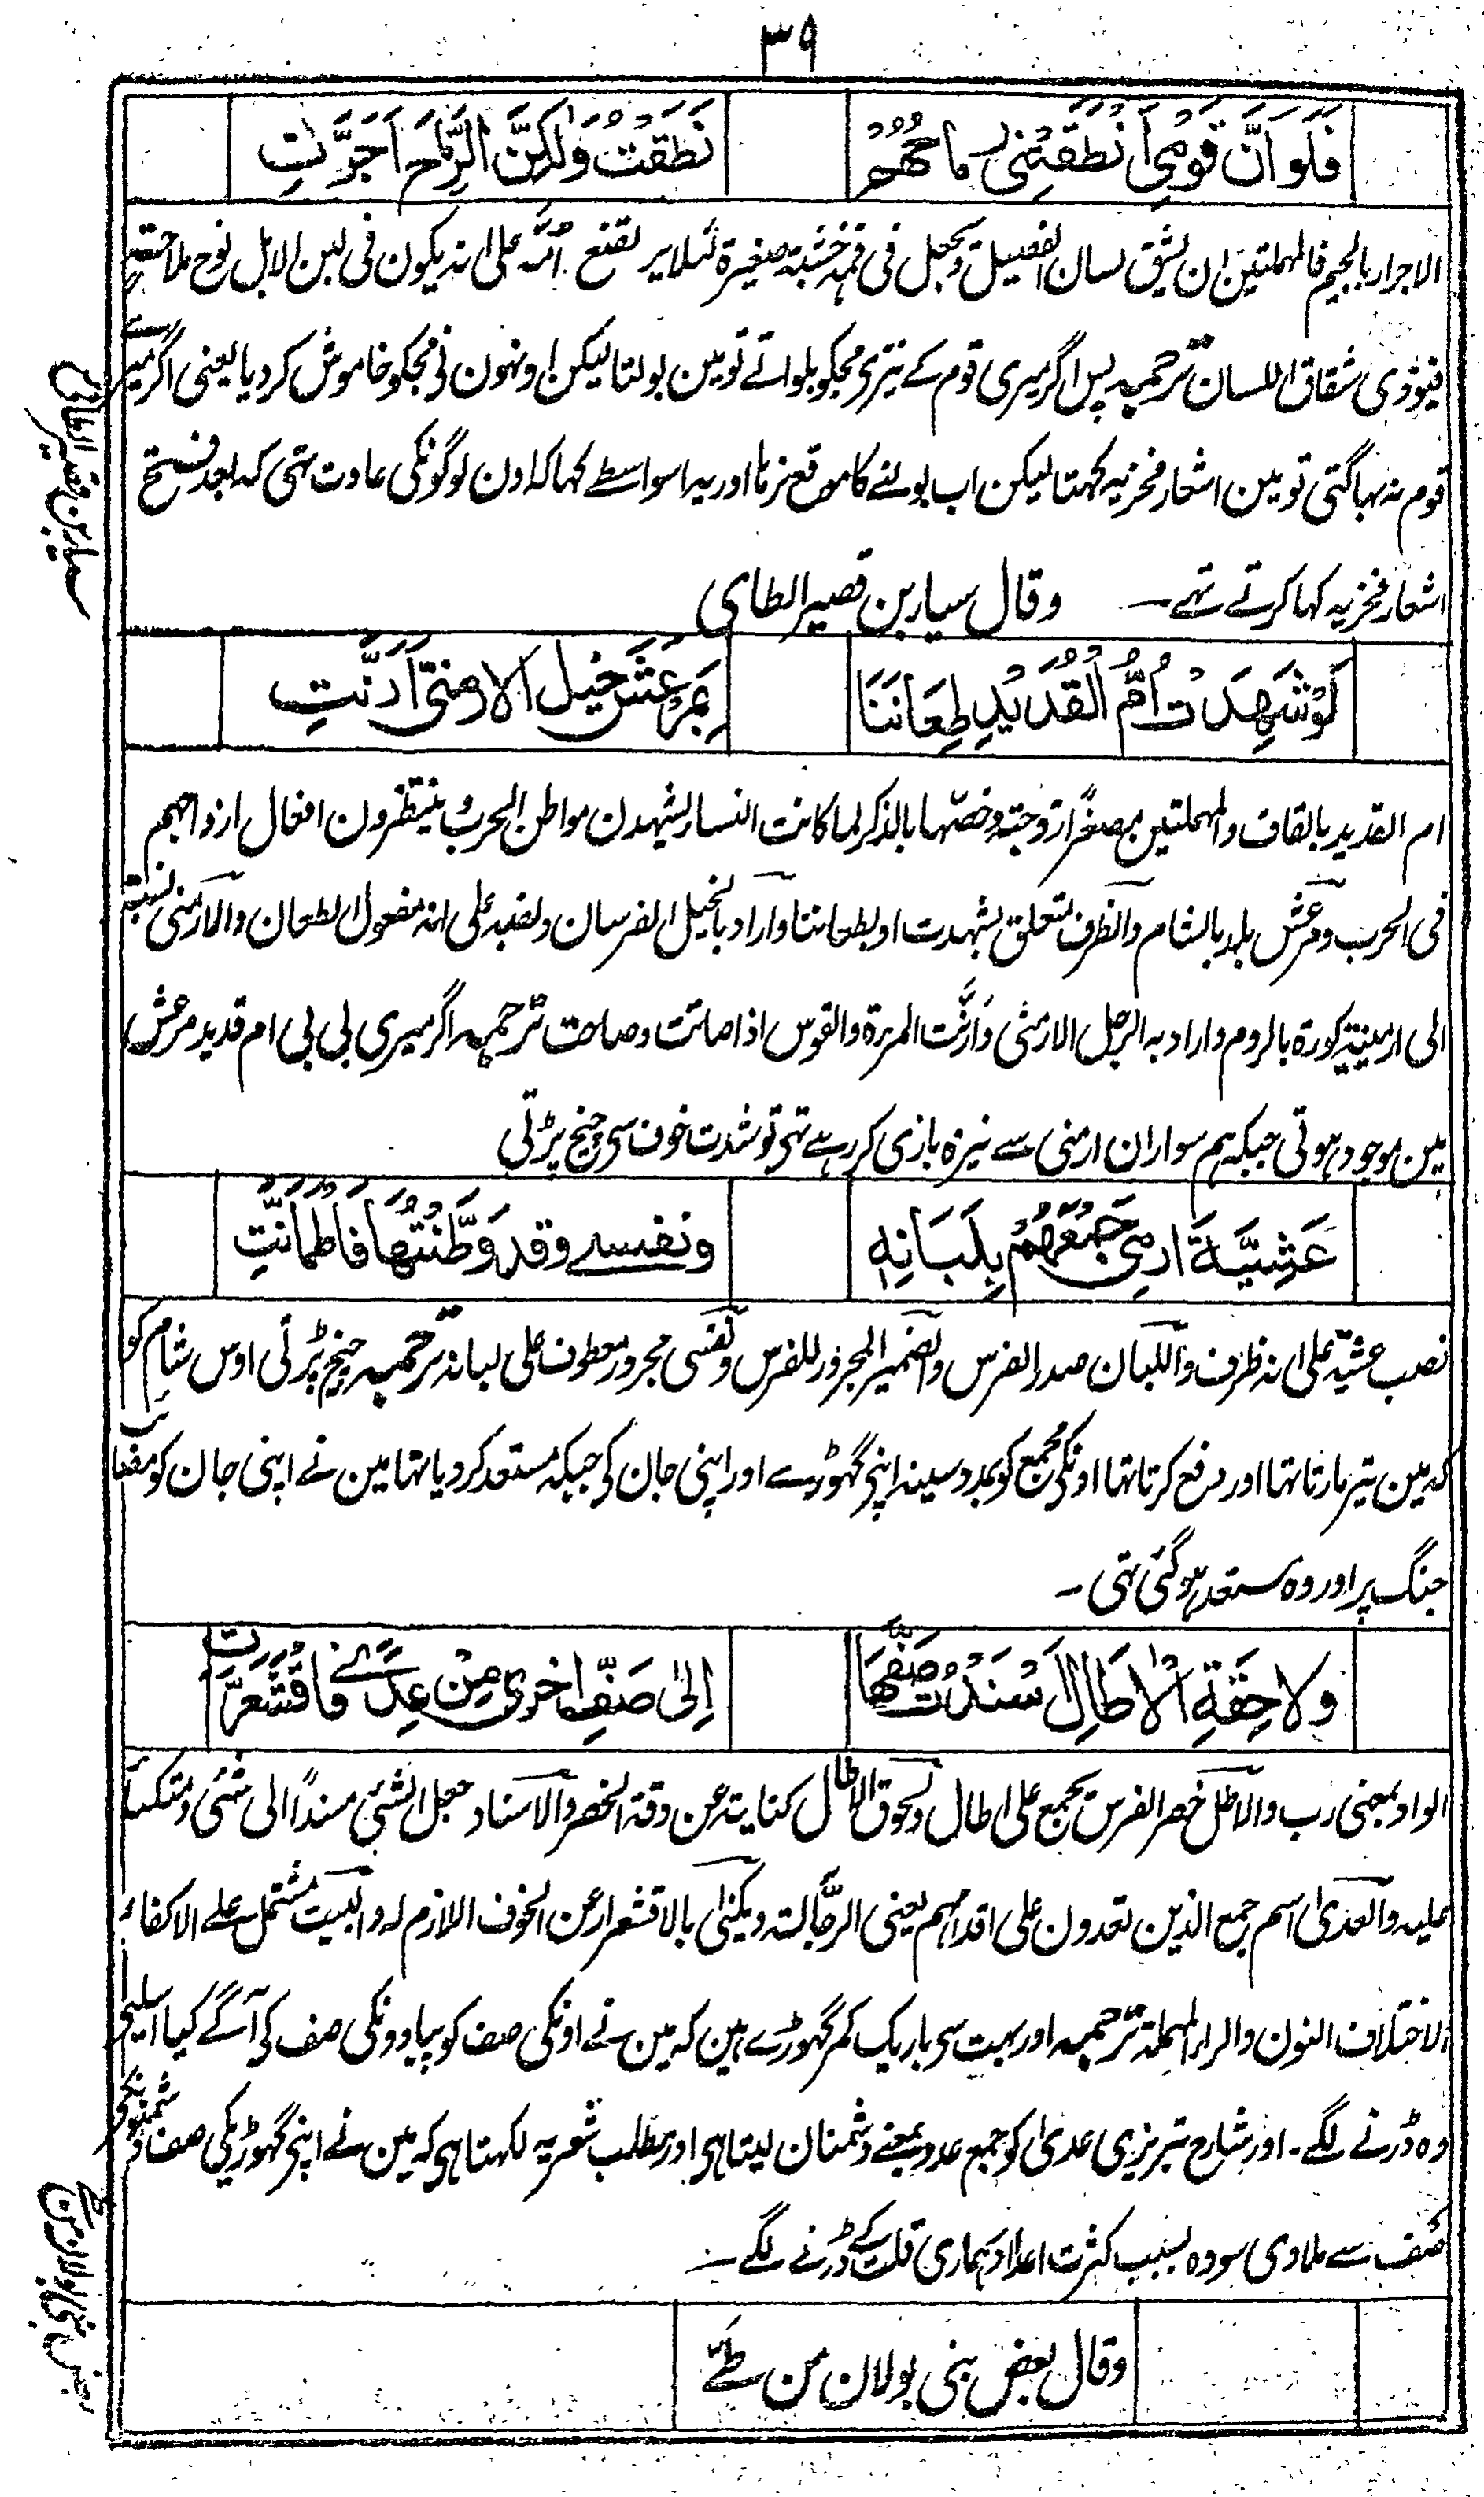 ۳۹
فَلَو اَنَّ قَوْمِي اَنْطَقَتْنِي رِماحُهُمْ نَطَقْتُ وَلٰكِنَّ الرِّمَاحَ اَجَرَّتِ
الاجرار بالجیم فالمہملتین ان یشق لسان الفصیل و یجعل فی فمہ خشبۃ صغیرۃ لئلا یرتضع امہ علی انہ یکون فی لبن الابل نوح ملاحتہ
فیؤذی شقاق اللسان ترجمہ پس اگر میری قوم کے نیزی مجکو بلواتے تو مین بولتا لیکن اونہون نی مجکو خاموش کر دیا یعنی اگر میری
قوم نہ بہاگتی تو مین اشعار فخریہ کہتا لیکن اب بولنے کا موقع نرہا اور یہ اسواسطے کہا کہ اون لوگونکی عادت تہی کہ بعد فتح
اشعار فخریہ کہا کرتے تہے ۔ وقال سیار بن قصیر الطای
لَوْ شَهِدَتْ اُمُّ الْقُدَيْدِ طِعَانَنَا بِمَرْعَشَ خَيْلَ الْاَرْمَنِيِّ اَرَنَّتِ
ام القدید بالقاف والمہملتین مصغرًا زوجتہ وخصّہا بالذکر لما کانت النساء یشہدن مواطن الحرب و ینتظرون افعال ازواجہم
فی الحرب ومرعش بلد بالشام والظرف متعلق بشہدت او بطعاننا واراد بالخیل الفرسان ونصبہ علی انہ مفعول الطعان والارمنی نسبۃ
الی ارمینیۃ کورۃ بالروم واراد بہ الرجل الارمنی وَارَنَّت المرءۃ والقوس اذا صاتت وصاحت ترجمہ اگر میری بی بی ام قدید مرعش
مین موجود ہوتی جبکہ ہم سواران ارمنی سے نیزہ بازی کر رہے تہی تو شدت خوف سی چیخ پڑتی
عَشِيَّةَ اَرْمِي جَمْعَهُمْ بِلَبَانِهِ وَنَفْسِے وقد وَطَّنْتُهَا فَاطْمَأَنَّتِ
نصب عشیۃ علی انہ ظرف واللبان صدر الفرس والضمیر المجرور للفرس ونفسی مجرور معطوف علی لبانہ ترجمہ چیخ پڑتی اوس شام کو
کہ مین تیر مارتا تہا اور دفع کرتا تہا اونکی مجمع کو بمدد سینہ اپنی گہوڑے اور اپنی جان کی جبکہ مستعد کر دیا تہا مین نے اپنی جان کو مصائب
جنگ پر اور وہ مستعد ہو گئی تہی ۔
ولاحِقَةِ الْاٰطَالِ اَسْنَدْتُ صَفَّهَا اِلىٰ صَفِّ اُخرىٰ مِنْ عِدًے فَاقْشَعَرَّتِ
الواو بمعنی رب والاطل خصر الفرس یجمع علی اٰطال ولحوق الاٰطال کنایۃ عن دقۃ الخصر والاسناد جعل الشئی مسندًا الی شئی ومتکئا
علیہ والعدی اسم جمع الذین تعدون علی اقدامہم یعنی الرجّالۃ ویکنی بالاقشعرار عن الخوف اللازم لہ والبیت مشتمل علے الاکفاء
لاختلاف النون والراء المہملۃ ترجمہ اور بہت سی باریک کمر گہوڑے ہین کہ مین نے اونکی صف کو پیادونکی صف کی آگے کیا اسلیے
وہ ڈرنے لگے ۔ اور شارح تبریزی عدیٰ کو جمع عدو بمعنے دشمنان لیتا ہی اور مطلب شعر یہ لکہتا ہی کہ مین نے اپنی گہوڑیکی صف دشمنونکی
صف سے ملادی سو وہ بسبب کثرت اعداد ہماری قلت کے ڈرنے لگے ۔
وقال بعض بنی بولان من طیّے
سیار بن قصیر الطائی
بعض بنی بولان من طے